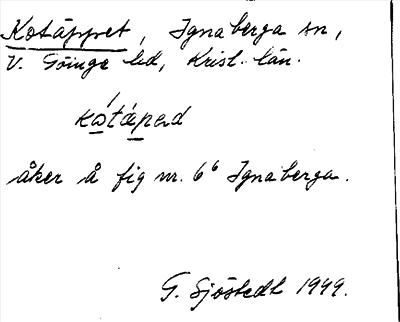 Kotäppet, Ignaberga sn,
V. Göinge hd, Krist. län.
ko̲tápəd
åker å fig nr. 6⁶ Ignaberga.
G. Sjöstedt 1949.